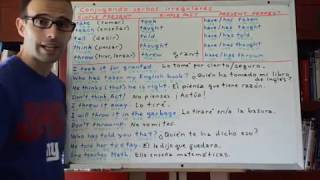 Conjugando verbos irregulares
SIMPLE PRESENT SIMPLE PAST PRESENT PERFECT
take (tomar) took have/has taken
teach (enseñar) taught have/has taught
tell (decir) told have/has told
think (pensar) thought have/has thought
throw (tirar, lanzar) threw have/has thrown
I took it for granted. Lo tomé por cierto/seguro.
Who has taken my English book? ¿Quién ha tomado mi libro de inglés?
He thinks (that) he is right. Él piensa que tiene razón.
Don't think! Act! No pienses ¡Actúa!
I threw it away. Lo tiré.
I will throw it in the garbage. Lo tiraré en la basura.
Don't throw up. No vomites.
Who has told you that? ¿Quién te ha dicho eso?
He told her to stay. Él le dijo que quedara.
She teaches Math. Ella enseña matemáticas.